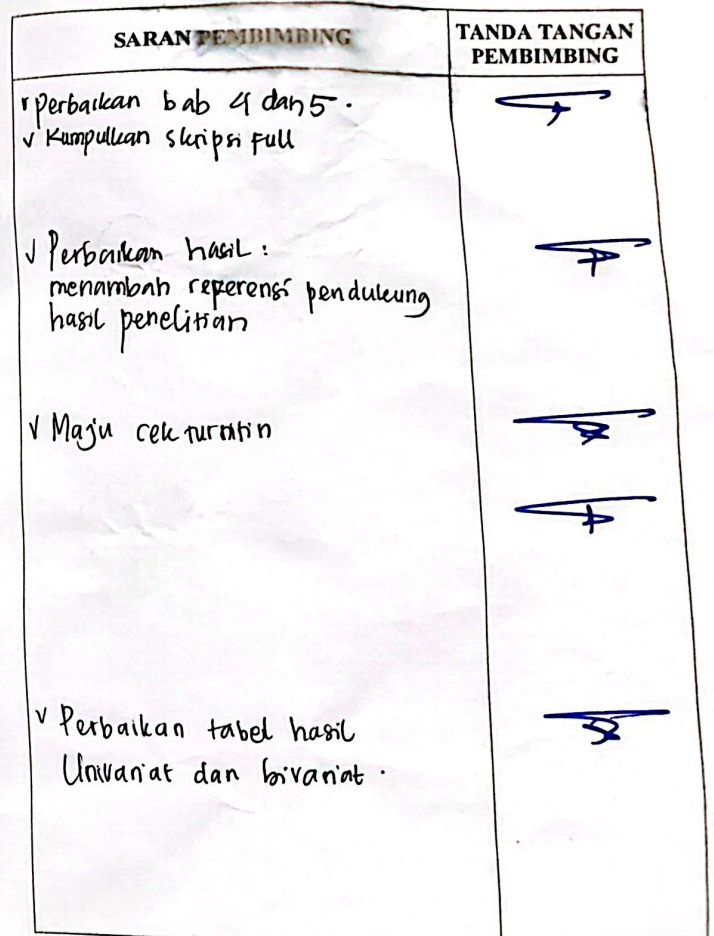 SARAN PEMBIMBING
TANDA TANGAN
PEMBIMBING
√ perbaikan bab 4 dan 5.
√ Kumpulkan skripsi Full
√ Perbaikan hasil :
menambah referensi pendukung
hasil penelitian
√ Maju cek turnitin
√ Perbaikan tabel hasil
Univariat dan bivariat.